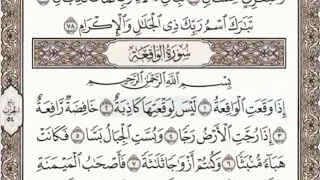 تَبَٰرَكَ ٱسْمُ رَبِّكَ ذِى ٱلْجَلَٰلِ وَٱلْإِكْرَامِ ٧٨
سُورَةُ الْوَاقِعَةِ
بِسْمِ ٱللَّهِ ٱلرَّحْمَٰنِ ٱلرَّحِيمِ
إِذَا وَقَعَتِ ٱلْوَاقِعَةُ ١ لَيْسَ لِوَقْعَتِهَا كَاذِبَةٌ ٢ خَافِضَةٌ رَّافِعَةٌ
٣ إِذَا رُجَّتِ ٱلْأَرْضُ رَجًّا ٤ وَبُسَّتِ ٱلْجِبَالُ بَسًّا ٥ فَكَانَتْ
هَبَآءً مُّنۢبَثًّا ٦ وَكُنتُمْ أَزْوَٰجًا ثَلَٰثَةً ٧ فَأَصْحَٰبُ ٱلْمَيْمَنَةِ